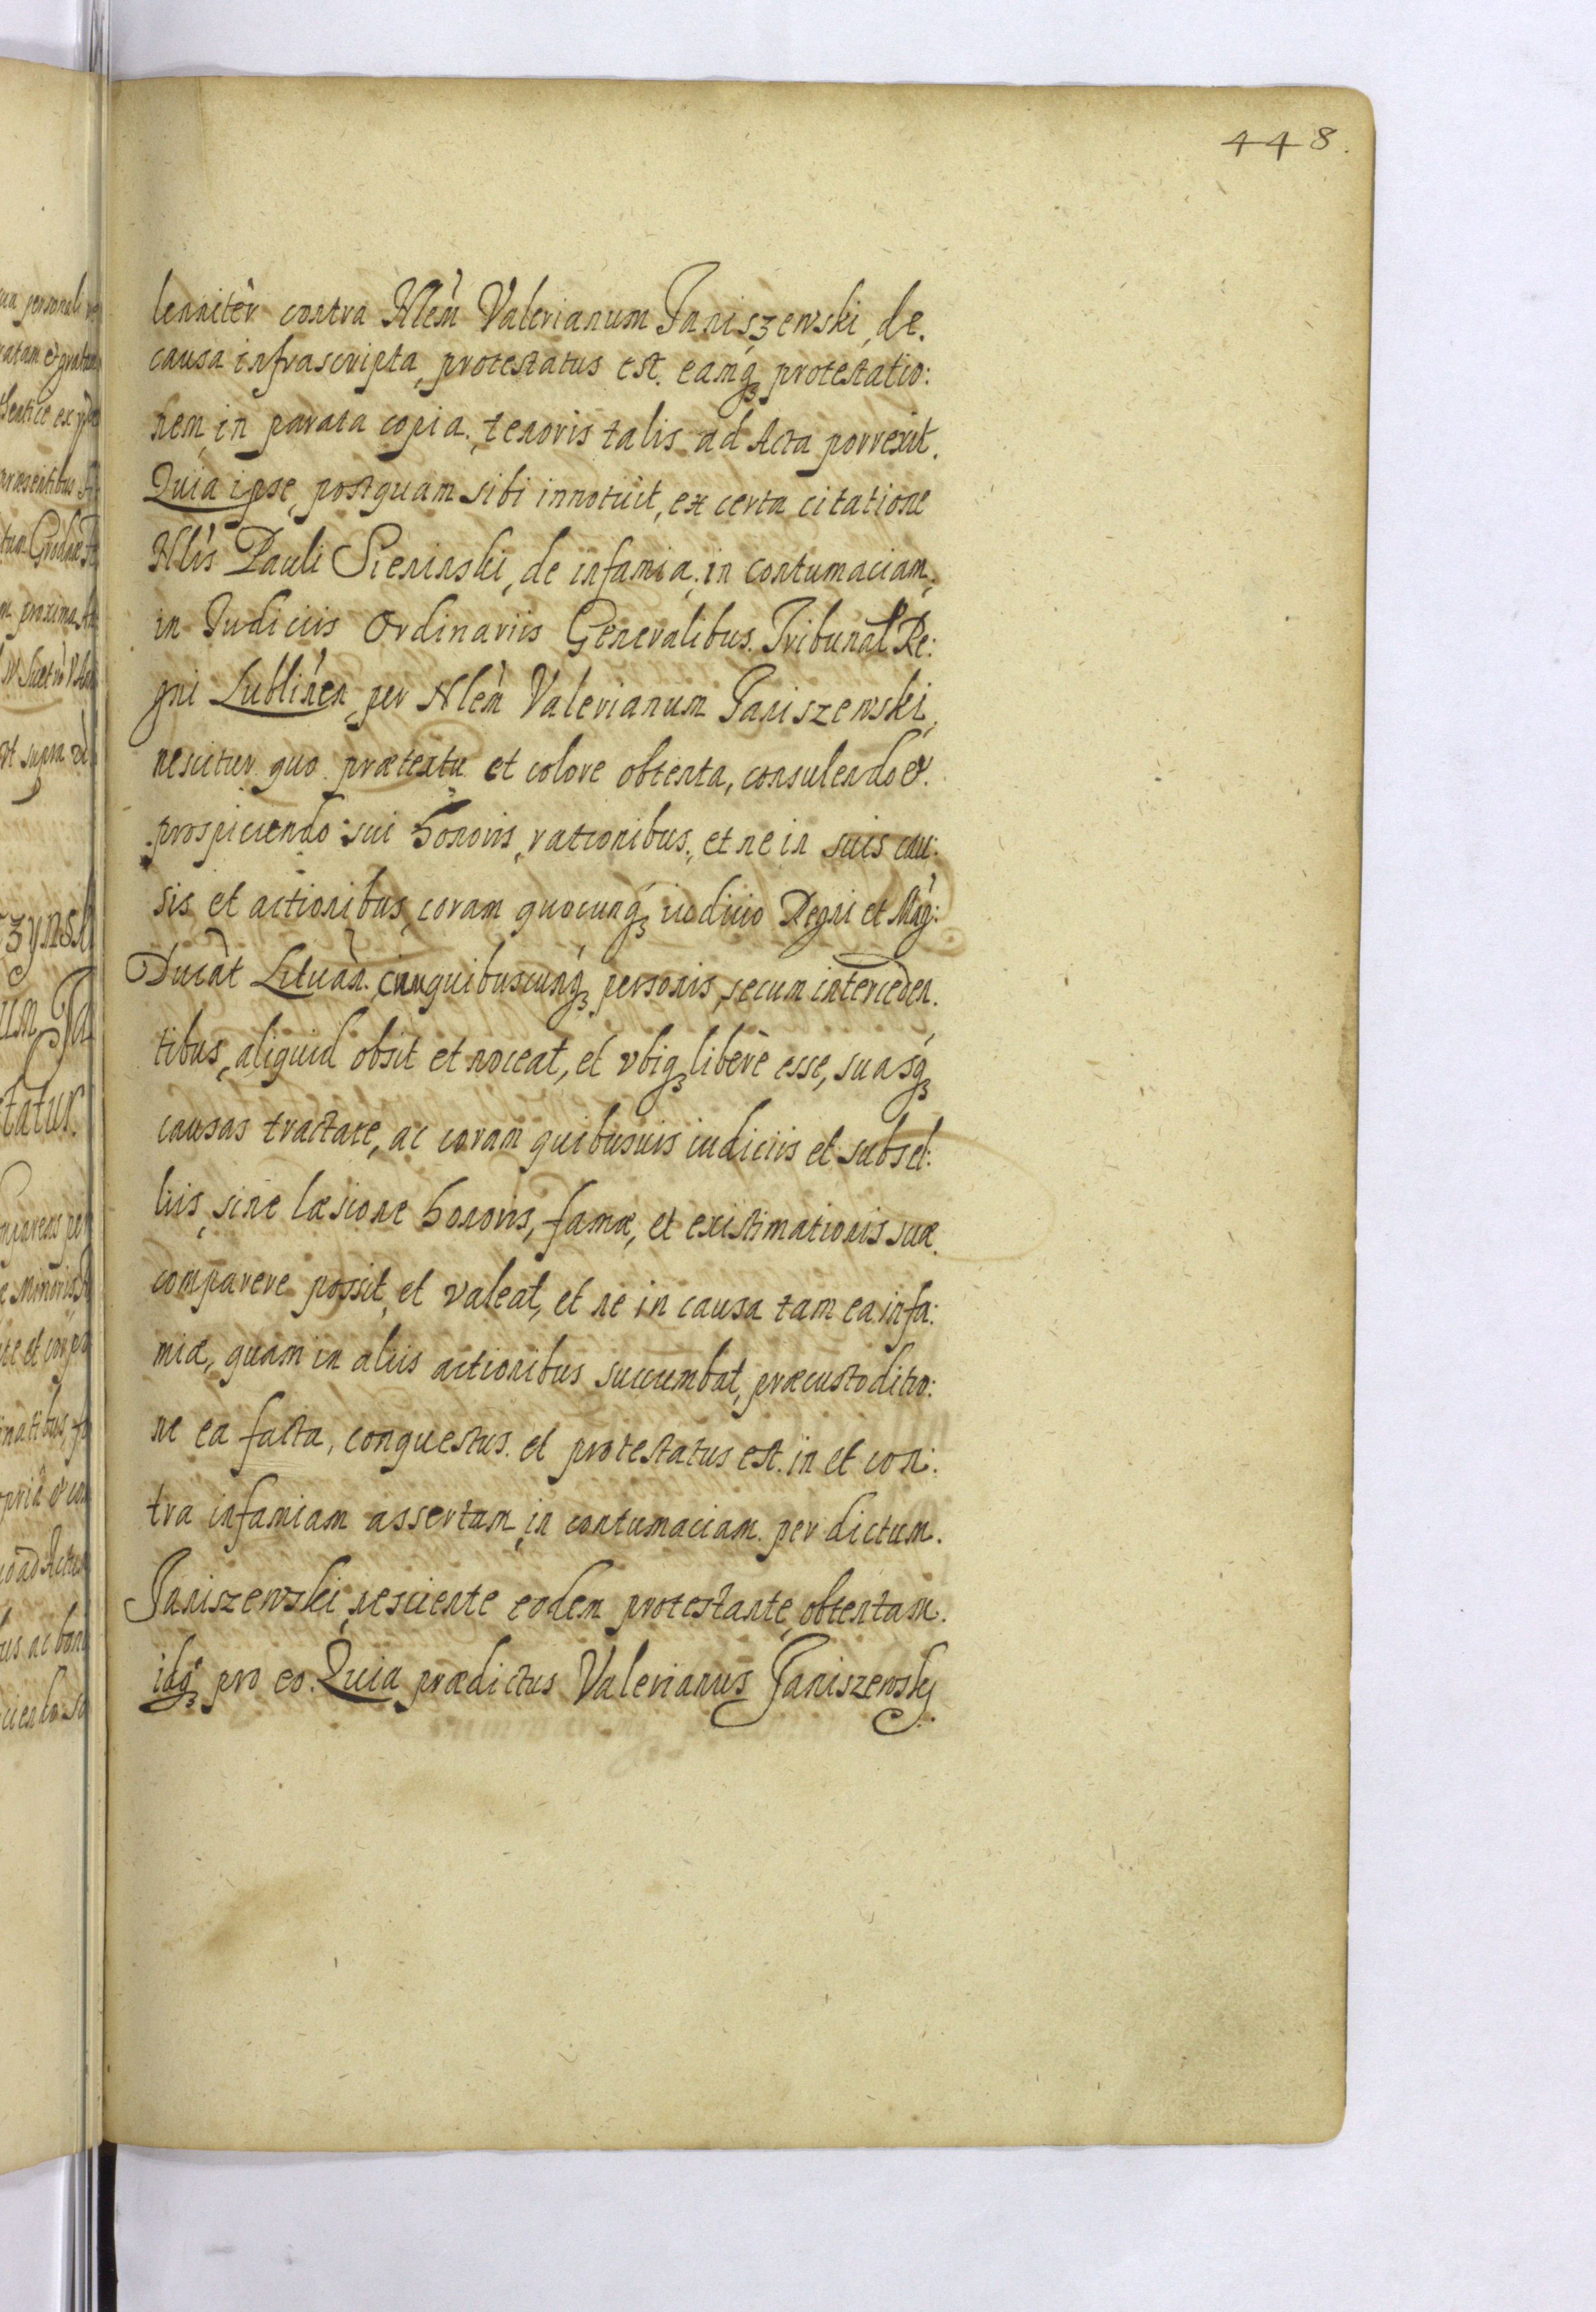 448.
lenniter contra Nlem̀ Valerianum Janiszewski, de.
causa infrascripta, protestatus est. eamq₃ protestatio:
nem, in parata copia, tenoris talis ad Acta porrexit.
Quia ipse, postquam sibi innotuit, ex certa citatione
Nlis Pauli Sieninski, de infamia, in contumaciam,
in Iudiciis Ordinariis Generalibus. Tribunal Re:
gni Lublinen, per Nlem̀ Valerianum Janiszewski,
nescitur quo prætextu et colore obtenta, consulendo &.
prospiciendo sui honoris, rationibus, et ne in suis cau:
sis et actionibus, coram quocunq₃ iudicio Regni et Mag:
Ducat Lituan. cum quibuscunq₃ personis, secum interceden.
tibus, aliquid obsit et noceat, et vbiq₃ liberè esse, suasq₃
causas tractare, ac coram quibusuis iudiciis et subsel:
liis, sine læsione honoris, famæ, et existimationis suæ.
comparere possit, et valeat, et ne in causa tam ea infa:
miæ, quam in aliis actionibus succumbat, præcustoditio:
ne ea facta, conquestus et protestatus est. in et con:
tra infamiam assertam, in contumaciam per dictum.
Janiszewski, nesciente eodem protestante, obtentam.
idq₃ pro eo. Quia prædictus Valerianus Janiszewsky.